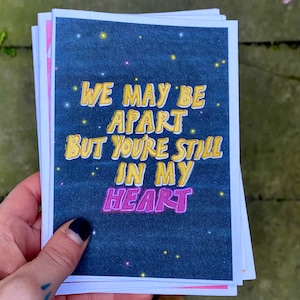 WE MAY BE
APART
BUT YOU'RE STILL
IN MY
HEART